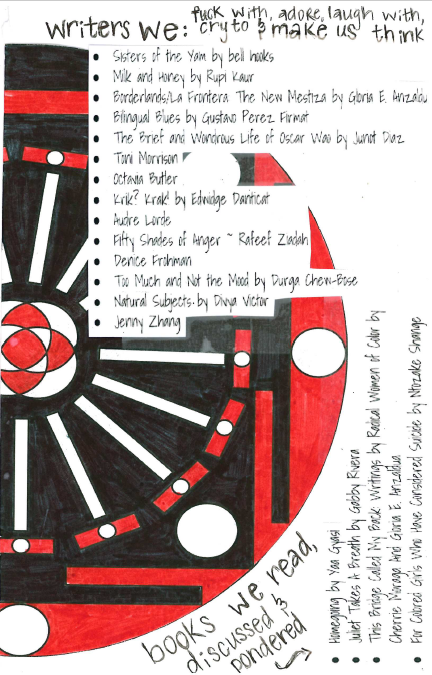 writers we: fuck with, adore, laugh with,
cry to & make us think
Sisters of the Yam by bell hooks
Milk and Honey by Rupi Kaur
Borderlands/La Frontera: The New Mestiza by Gloria E. Anzaldu
Bilingual Blues by Gustavo Perez Firmat
The Brief and Wondrous Life of Oscar Wao by Junot Diaz
Toni Morrison
Octavia Butler
Krik? Krak! by Edwidge Danticat
Audre Lorde
Fifty Shades of Anger ~ Rafeef Ziadah
Denice Frohman
Too Much and Not the Mood by Durga Chew-Bose
Natural Subjects by Divya Victor
Jenny Zhang
books we read,
discussed &
pondered
Homegoing by Yaa Gyasi
Juliet Takes A Breath by Gabby Rivera
This Bridge Called My Back Writings by Radical Women of Color by
Cherrie Moraga And Gloria E. Anzaldua
For Colored Girls Who Have Considered Suicide by Ntozake Shange